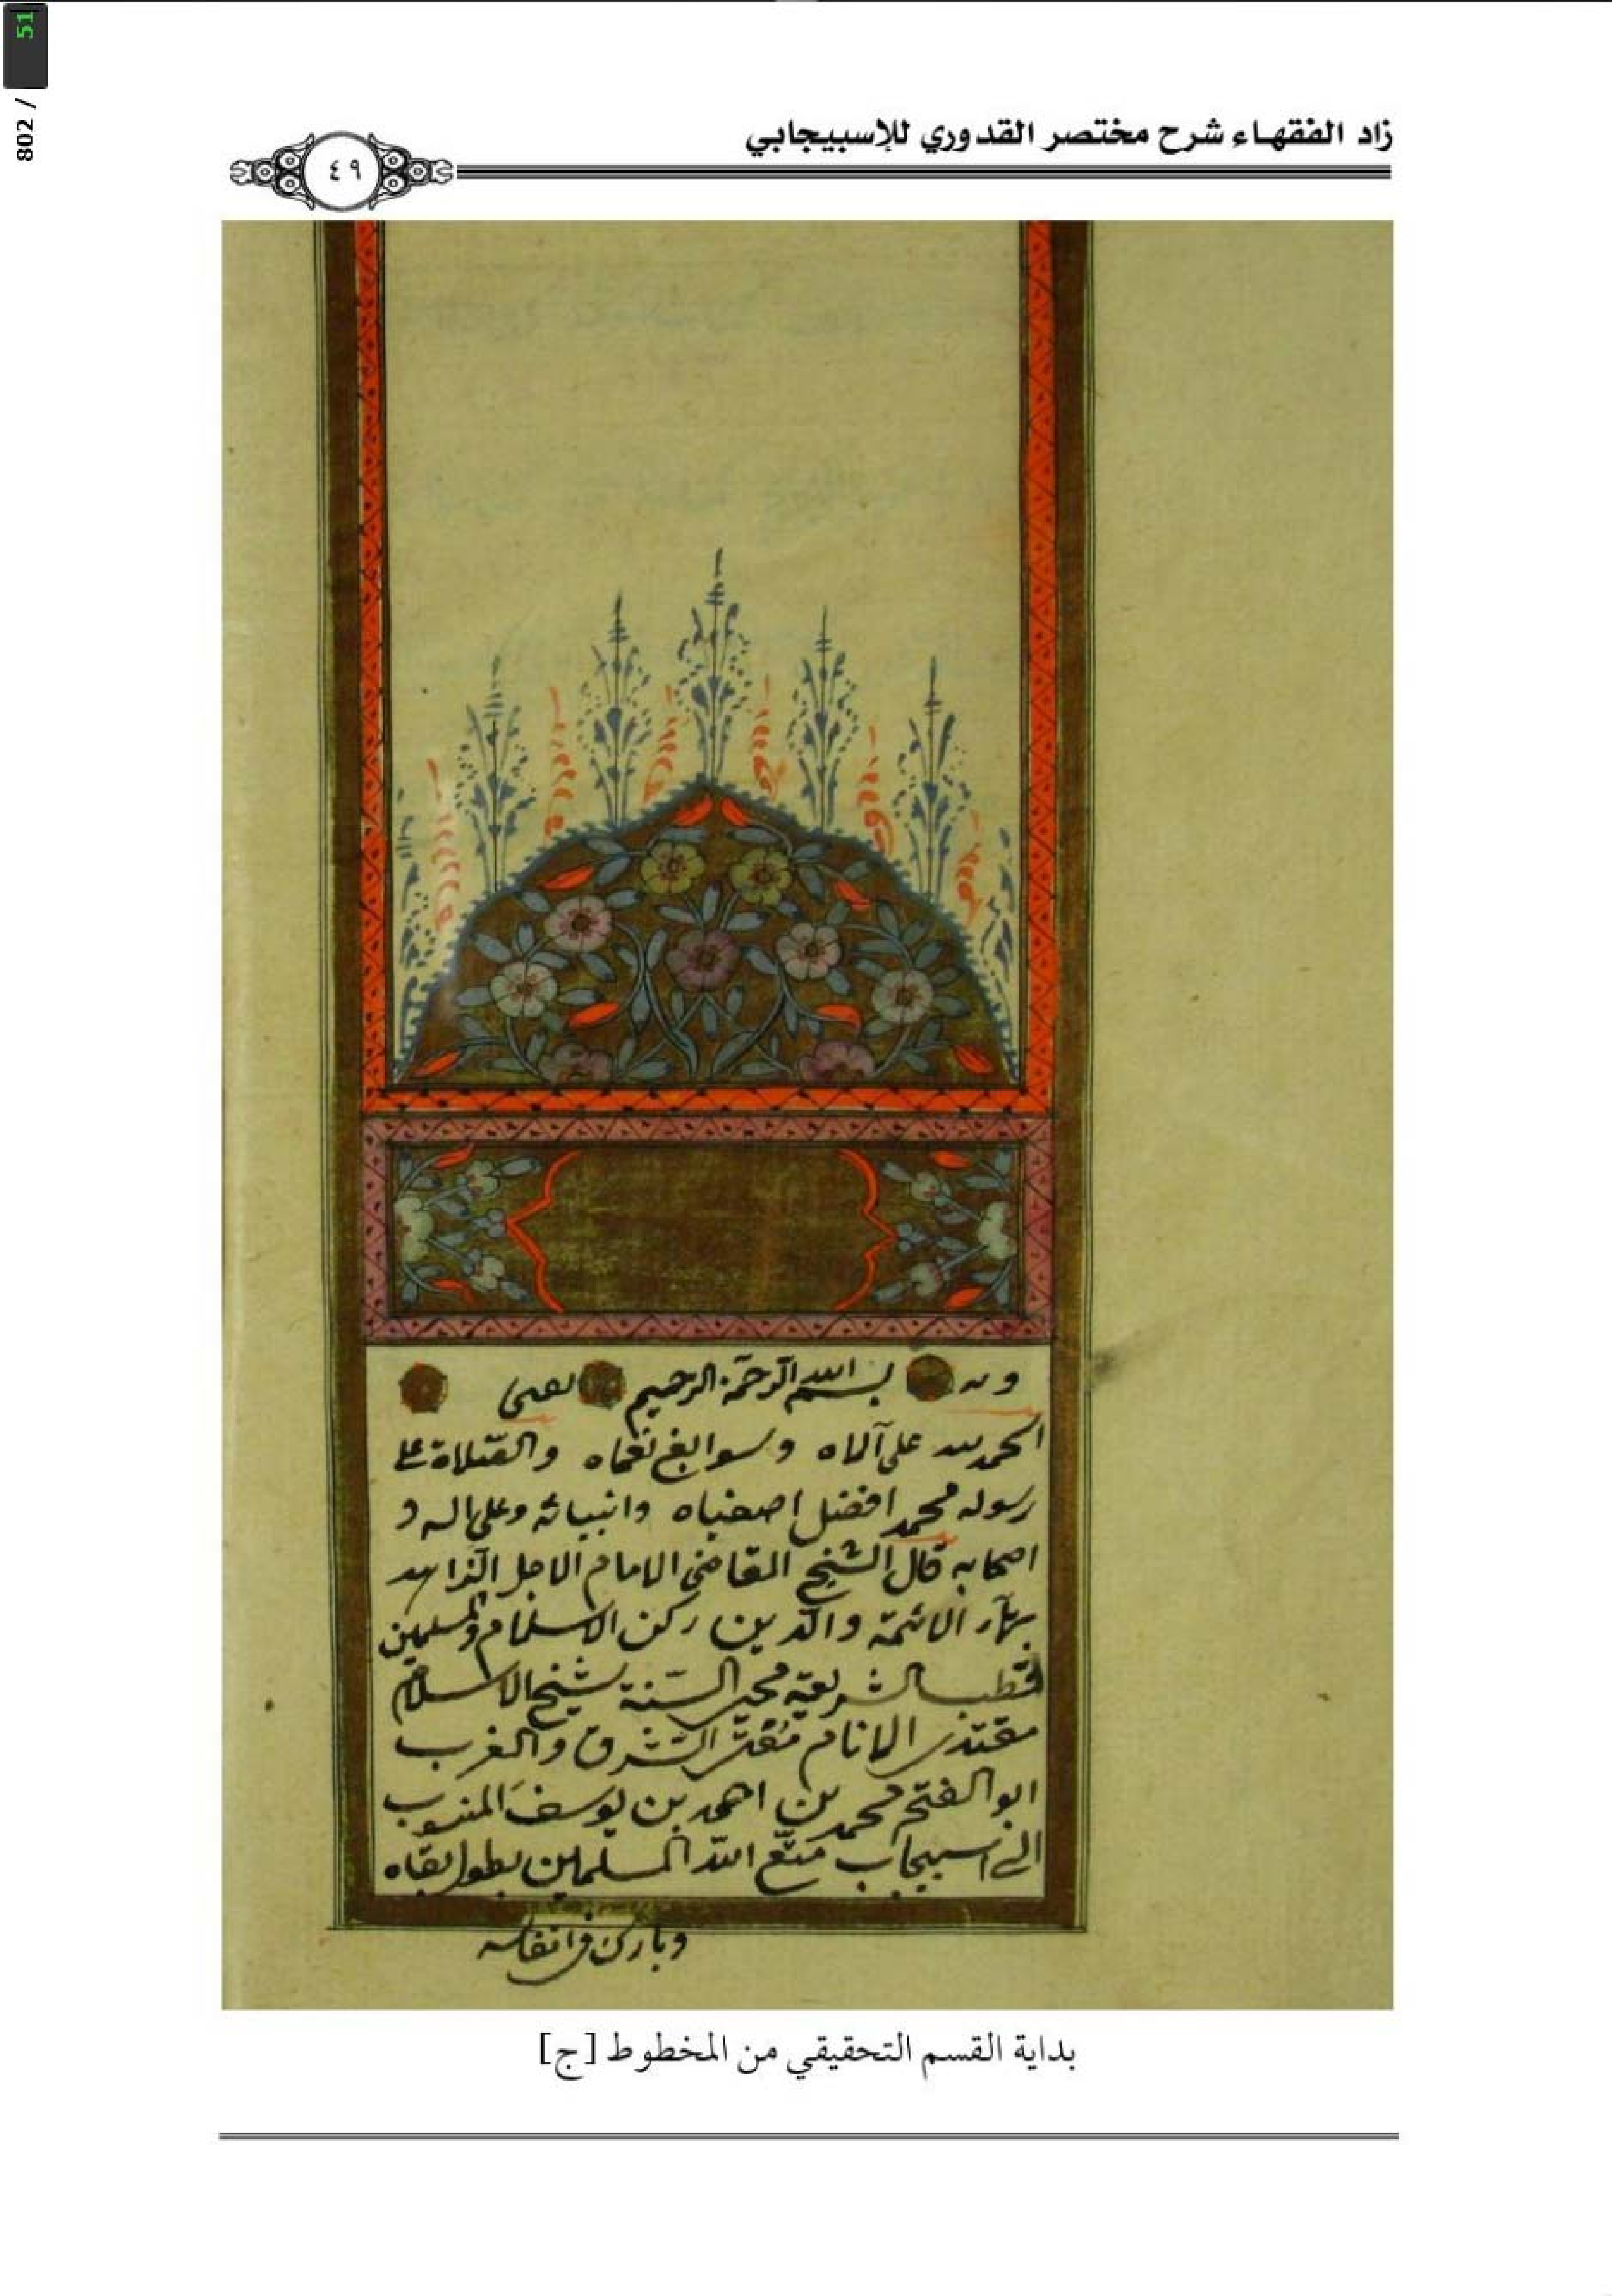 51
/ 802
زاد الفقهاء شرح مختصر القدوري للإسبيجابي
٤٩
وبه بسم الله الرحمن الرحيم نستعين
الحمد لله على آلاه وسوابغ نعماه والصّلاة على
رسوله محمد افضل اصفياه وانبيائه وعلى اله و
اصحابه قال الشيخ القاضى الامام الاجل الزاهد
بهآء الائمة والدين ركن الاسلام والمسلمين
قطب الشريعة محيى السنة شيخ الاسلام
مقتدى الانام مُفتى الشرق والغرب
ابو الفتح محمد بن احمد بن يوسف المنسوب
الى اسبيجاب متّع الله المسلمين بطول بقاه
وبارك فى انفاسه
بداية القسم التحقيقي من المخطوط [ج]